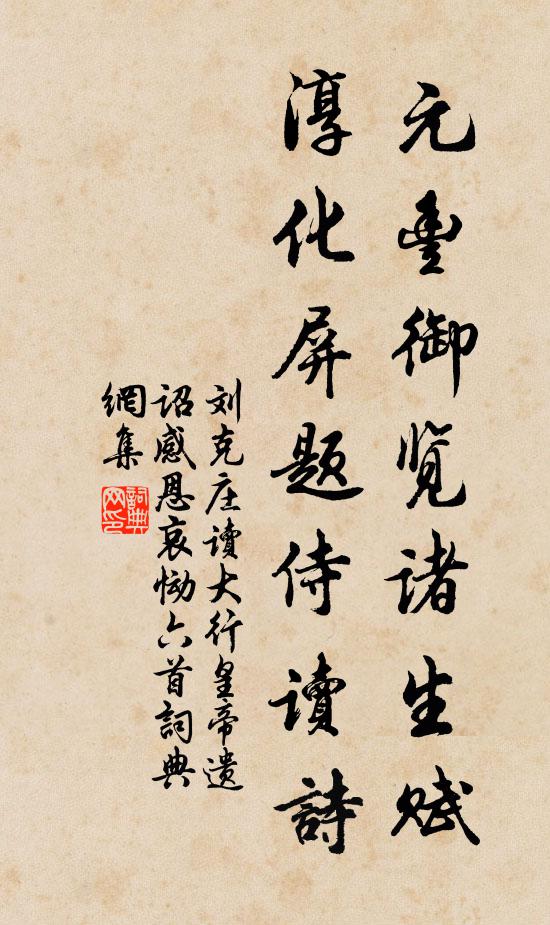 元豐御览諸生赋
淳化屏题侍讀詩
刘克庄讀大行皇帝遗
诏感恩哀慟六首詞典
網集
詞典网印